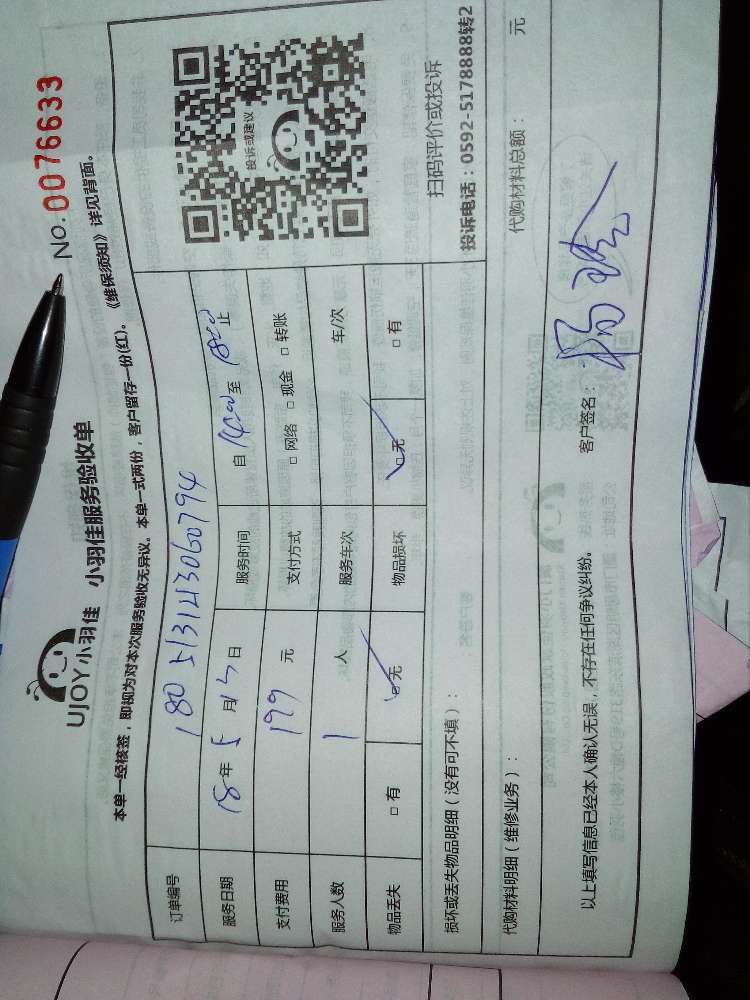 UJOY小羽佳 小羽佳服务验收单
No.0076633
本单一经核签，即视为对本次服务验收无异议。本单一式两份，客户留存一份(红)。《维保须知》详见背面。
订单编号 1805131213060794
服务日期 18年5月13日 服务时间 自14:00至18:00止
支付费用 199元 支付方式 □网络 □现金 □转账
服务人数 1人 服务车次 车/次
物品丢失 □有 □无 物品损坏 □无 □有
投诉或建议
扫码评价或投诉
投诉电话：0592-5178888转2
损坏或丢失物品明细（没有可不填）：
代购材料明细（维修业务）： 代购材料总额： 元
以上填写信息已经本人确认无误，不存在任何争议纠纷。 客户签名：